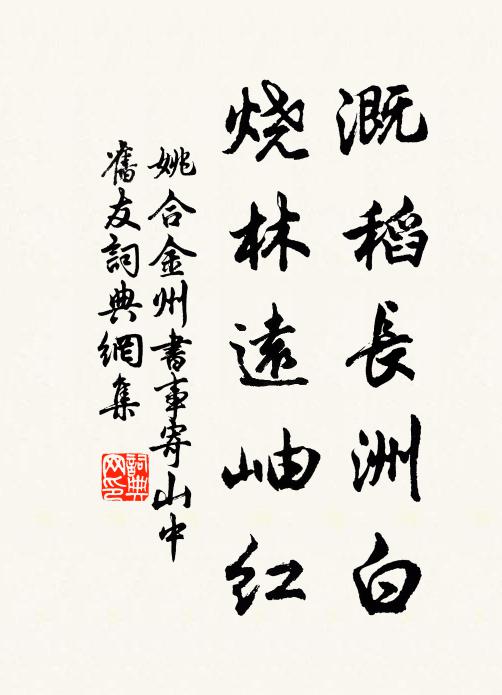 溉稻長洲白
烧林遠岫红
姚合金州書事寄山中
舊友詞典網集
詞典
网印